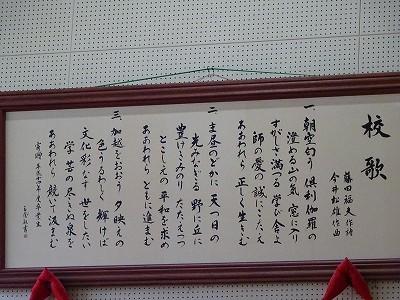 校歌
藤田福夫作詩
今井松雄作曲
一、朝空匂う 倶利伽羅の
澄める山の気 窓に入り
すがしさ満つる 学び舎よ
師の愛の 誠にこたえ
ああわれら 正しく生きむ
二、真昼のどかに 天つ日の
光みなぎる 野に丘に
豊けきみのり たたえつつ
とこしえの 平和を求め
ああわれら ともに進まむ
三、加越をおおう 夕映えの
色うるわしく 輝けば
文化影なす 世をしたい
学芸の 尽きぬ泉を
ああわれら 競いて汲まむ
寄贈 平成十一年度卒業生